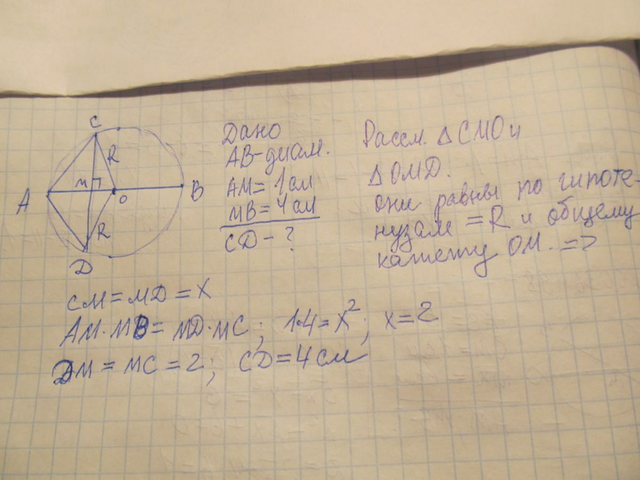 C
R
A
M
O
B
R
D
Дано
AB-диам.
AM=1см
MB=4см
CD-?
Рассм. △CMO и
△OMD.
они равны по гипоте-
нузам =R и общему
катету OM. =>
CM=MD=X
AM·MB=MD·MC; 1·4=X²; X=2
DM=MC=2; CD=4см